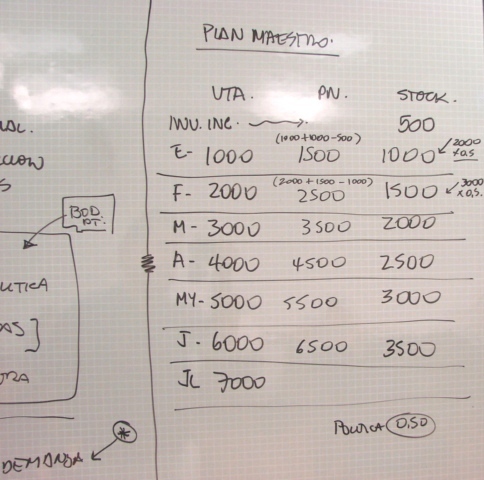 PLAN MAESTRO.
VTA. PN. STOCK.
INV. INC. → 500
(1000+1000-500)
E- 1000 1500 1000 ← 2000 x 0.5
(2000+1500-1000)
F- 2000 2500 1500 ← 3000 x 0.5.
M- 3000 3500 2000
A- 4000 4500 2500
MY- 5000 5500 3000
J- 6000 6500 3500
JL 7000
POLITICA 0,50
BOD.
PT.
DEMANDA